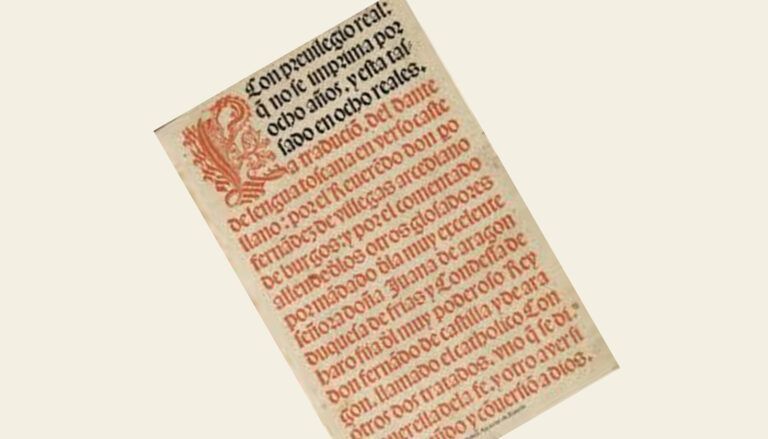 Con preuilegio real:
q̃ no se imprima por
ocho años, y esta tas-
sado en ocho reales.
La traduciõ del dante
de lengua toscana en verso caste
llano: por el Reuerẽdo don po
fernãdez de villegas arcediano
de burgos: y por el comentado
allende dlos otros glosadores
por mãdado dla muy excelente
señora doña Juana de aragon
duquesa de frias y Condessa de
haro fija dl muy poderoso Rey
don fernãdo de castilla y de ara
gon. llamado el catholico Con
otros dos tratados. vno q̃ se di
querella de la fe. y otro auersi
y cõuersiõ a dios.